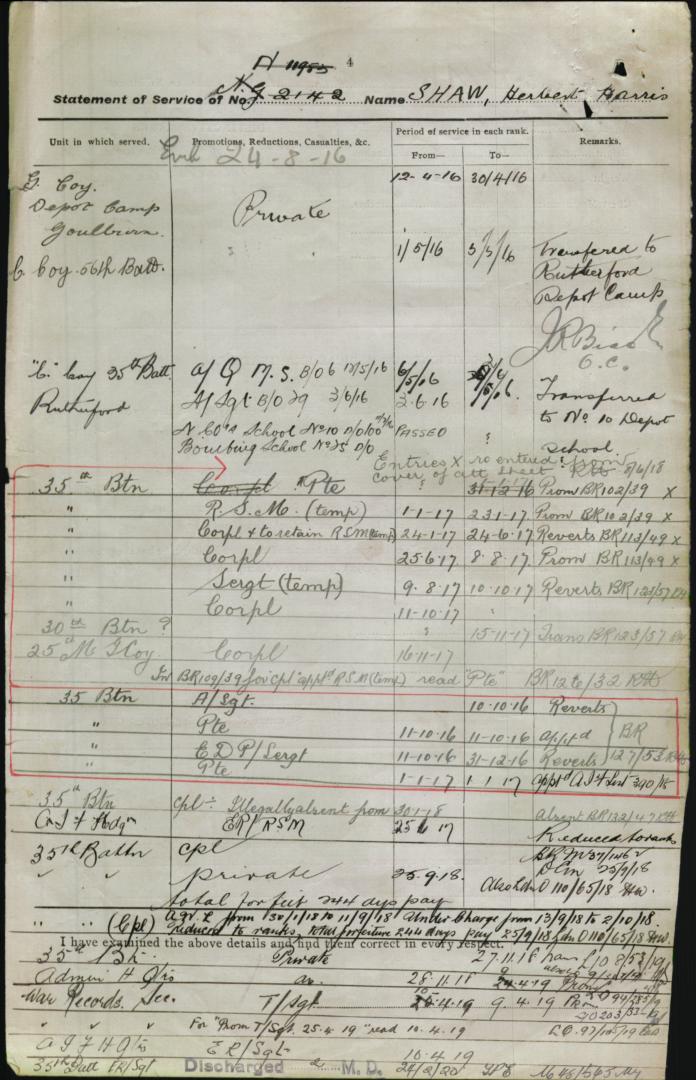 A 11985 4
N.G 2142
Statement of Service of No. Name SHAW, Herbert Harris
Unit in which served. Promotions, Reductions, Casualties, &c. Period of service in each rank. Remarks.
From— To—
24-8-16
G. Coy. 12-4-16 30/4/16
Depot Camp Private
Goulburn.
1/5/16 5/5/16 Transferred to
C. Coy. 56th Batt. Rutherford
Depot Camp
O.C.
"C." Coy 35th Batt. A/Q.M.S. B/O 6 17/5/16 6/5/16
Rutherford A/Sgt B/O 29 3/6/16 3.6.16 Transferred
N.C.O's School No 10 D/O PASSED to No 10 Depot
Bombing School No 25 D/O School.
Entries X re entered
cover of att. sheet 8/6/18
35th Btn Corpl Pte 31-12-16 Prom BR102/39 X
" R.S.M. (temp) 1-1-17 23.1-17 Prom BR102/39 X
" Corpl & to retain RSM (temp) 24-1-17 24-6-17 Reverts BR113/49 X
" Corpl 25.6.17 8.8.17 Prom BR113/49 X
" Sergt (temp) 9.8.17 10.10.17 Reverts BR123/57
" Corpl 11-10-17
30th Btn ? 15-11-17 Trans BR123/57
25th M G Coy Corpl 16-11-17
For BR109/39 for Cpl appt'd RSM (temp) read "Pte" BR126/32
35 Btn A/Sgt. 10.10.16 Reverts
" Pte 11-10-16 11-10-16 app'td BR
" E.D.P/Sergt 11-10-16 31-12-16 Reverts 127/53
" Pte 1-1-17 1-1-17 appt'd A.I.F List 390/18
35th Btn Cpl Illegally absent from 30.1.18 Absent BR132/47
A.I.F Hdqrs ER/RSM 17 Reduced to ranks
35th Battn Cpl 25/9/18
" " Private 25.9.18. Also Ldn O 110/65/18
total forfeit 244 days pay
" " (Cpl) A.W.L from 30/1/18 to 11/9/18 Under Charge from 13/9/18 to 2/10/18
reduced to ranks, total forfeiture 244 days pay 25/9/18 Ldn O 110/65/18
I have examined the above details and find them correct in every respect.
35th Bn. Private 27.11.18
Admin H Qrs 28.11.18 24.4.19
War Records. Sec. T/Sgt 4.19 9.4.19
" " " For "Prom T/Sgt. 25.4.19" read 10.4.19
A I F H Qrs ER/Sgt 10.4.19
35th Batt ER/Sgt Discharged M.D. 24/2/20